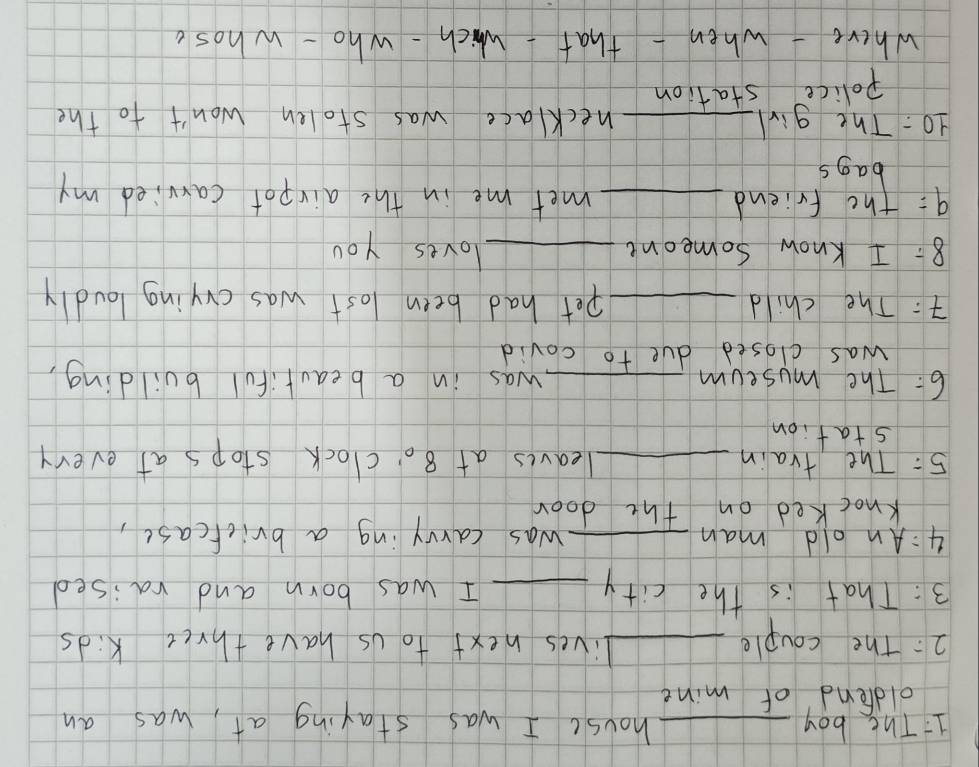 1= The boy ______ house I was staying at, was an
oldfend of mine
2= The couple ______ lives next to us have three kids
3= That is the city ______ I was born and raised
4= An old man ______ was carrying a briefcase,
knocked on the door
5= The train ______ leaves at 8o'clock stops at every
station
6= The museum ______ was in a beautiful building,
was closed due to covid
7= The child ______ pet had been lost was crying loudly
8= I know someone ______ loves you
9= The friend ______ met me in the airpot carried my
bags
10= The girl ______ necklace was stolen won't to the
police station
where - when - that - which - who - whose